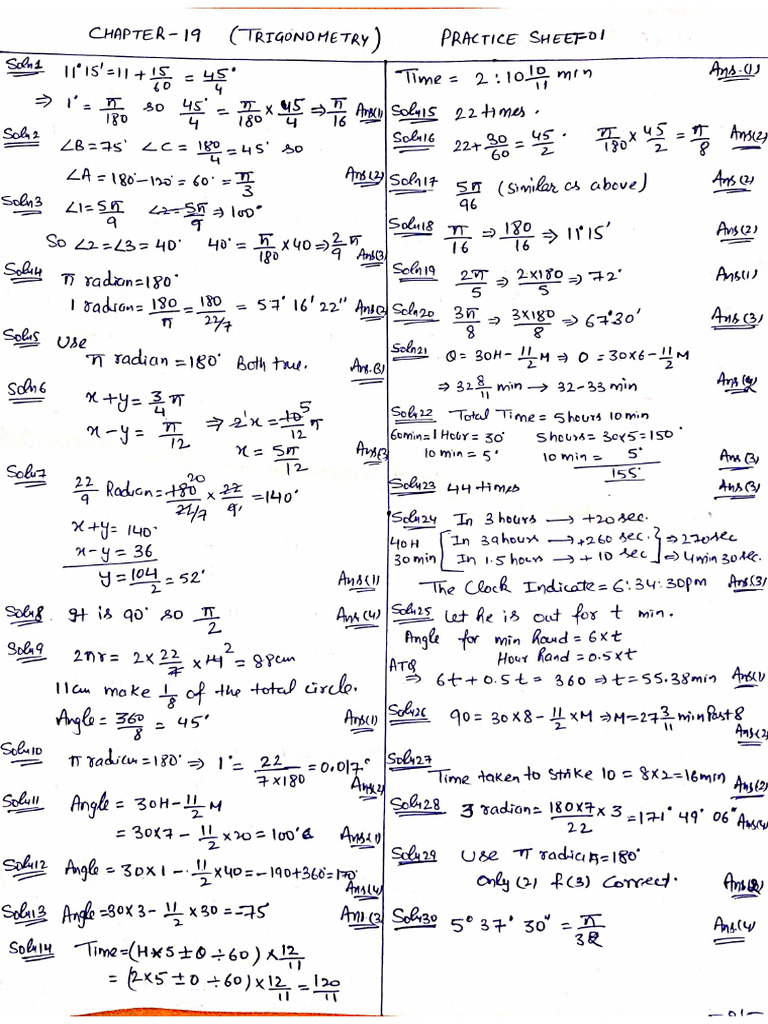 CHAPTER-19 (TRIGONOMETRY) PRACTICE SHEET-01
Soln1 11°15' = 11 + 15/60 = 45°/4
⇒ 1° = π/180 so 45°/4 = π/180 × 45/4 ⇒ π/16 Ans(1)
Soln2 ∠B = 75° ∠C = 180/4 = 45° so
∠A = 180 - 120° = 60° = π/3 Ans(2)
Soln3 ∠1 = 5π/9 ∠2 = 5π/9 ⇒ 100°
So ∠2 = ∠3 = 40° 40° = π/180 × 40 ⇒ 2/9 π Ans(3)
Soln4 π radian = 180°
1 radian = 180/π = 180/22/7 = 57° 16' 22"
Soln5 Use
π radian = 180° Both true. Ans.(3)
Soln6 x + y = 3/4 π
x - y = π/12 ⇒ 2x = 10/12 π
x = 5π/12 Ans(3
Soln7 22/9 Radian = 180/22/7 × 22/9 = 140°
x + y = 140°
x - y = 36
y = 104/2 = 52° Ans(1)
Soln8 It is 90° so π/2 Ans(4)
Soln9 2πr = 2 × 22/7 × 14 = 88cm
11cm make 1/8 of the total circle.
Angle = 360/8 = 45° Ans(1)
Soln10 π radian = 180° ⇒ 1° = 22/7×180 = 0.017° Ans(2)
Soln11 Angle = 30H - 11/2 M
= 30×7 - 11/2 × 20 = 100° Ans(1)
Soln12 Angle = 30×1 - 11/2 × 40 = -190 + 360 = 170° Ans(4)
Soln13 Angle = 30×3 - 11/2 × 30 = -75 Ans(3
Soln14 Time = (H×5 ± 0 ÷ 60) × 12/11
= (2×5 ± 0 ÷ 60) × 12/11 = 120/11
Time = 2:10 10/11 min Ans.(1)
Soln15 22 times.
Soln16 22 + 30/60 = 45/2° π/180 × 45/2 = π/8 Ans(2)
Soln17 5π/96 (similar as above) Ans(2)
Soln18 π/16 ⇒ 180/16 ⇒ 11°15' Ans(2)
Soln19 2π/5 ⇒ 2×180/5 ⇒ 72° Ans(1)
Soln20 3π/8 ⇒ 3×180/8 ⇒ 67°30' Ans(3)
Soln21 θ = 30H - 11/2 M ⇒ 0 = 30×6 - 11/2 M
⇒ 32 8/11 min → 32-33 min
Soln22 Total Time = 5 hours 10 min
60min = 1 Hour = 30° 5 hours = 30×5 = 150°
10 min = 5° 10 min = 5° Ans(3)
155°
Soln23 44 times Ans(3)
Soln24 In 3 hours → +20 sec.
40H [ In 39 hours → +260 sec. } ⇒ 270 sec
30 min [ In 1.5 hours → + 10 sec } ⇒ 4 min 30 sec.
The Clock Indicate = 6:34:30pm Ans(3)
Soln25 Let he is out for t min.
Angle for min hand = 6×t
Hour hand = 0.5×t
ATQ
⇒ 6t + 0.5t = 360 ⇒ t = 55.38 min Ans(1)
Soln26 90 = 30×8 - 11/2 × M ⇒ M = 27 3/11 min Past 8 Ans(2)
Soln27
Time taken to strike 10 = 8×2 = 16 min Ans(2)
Soln28 3 radian = 180×7/22 × 3 = 171° 49° 06" Ans(4)
Soln29 Use π radian = 180°
Only (2) & (3) Correct.
Soln30 5° 37° 30" = π/32 Ans(4)
-01-